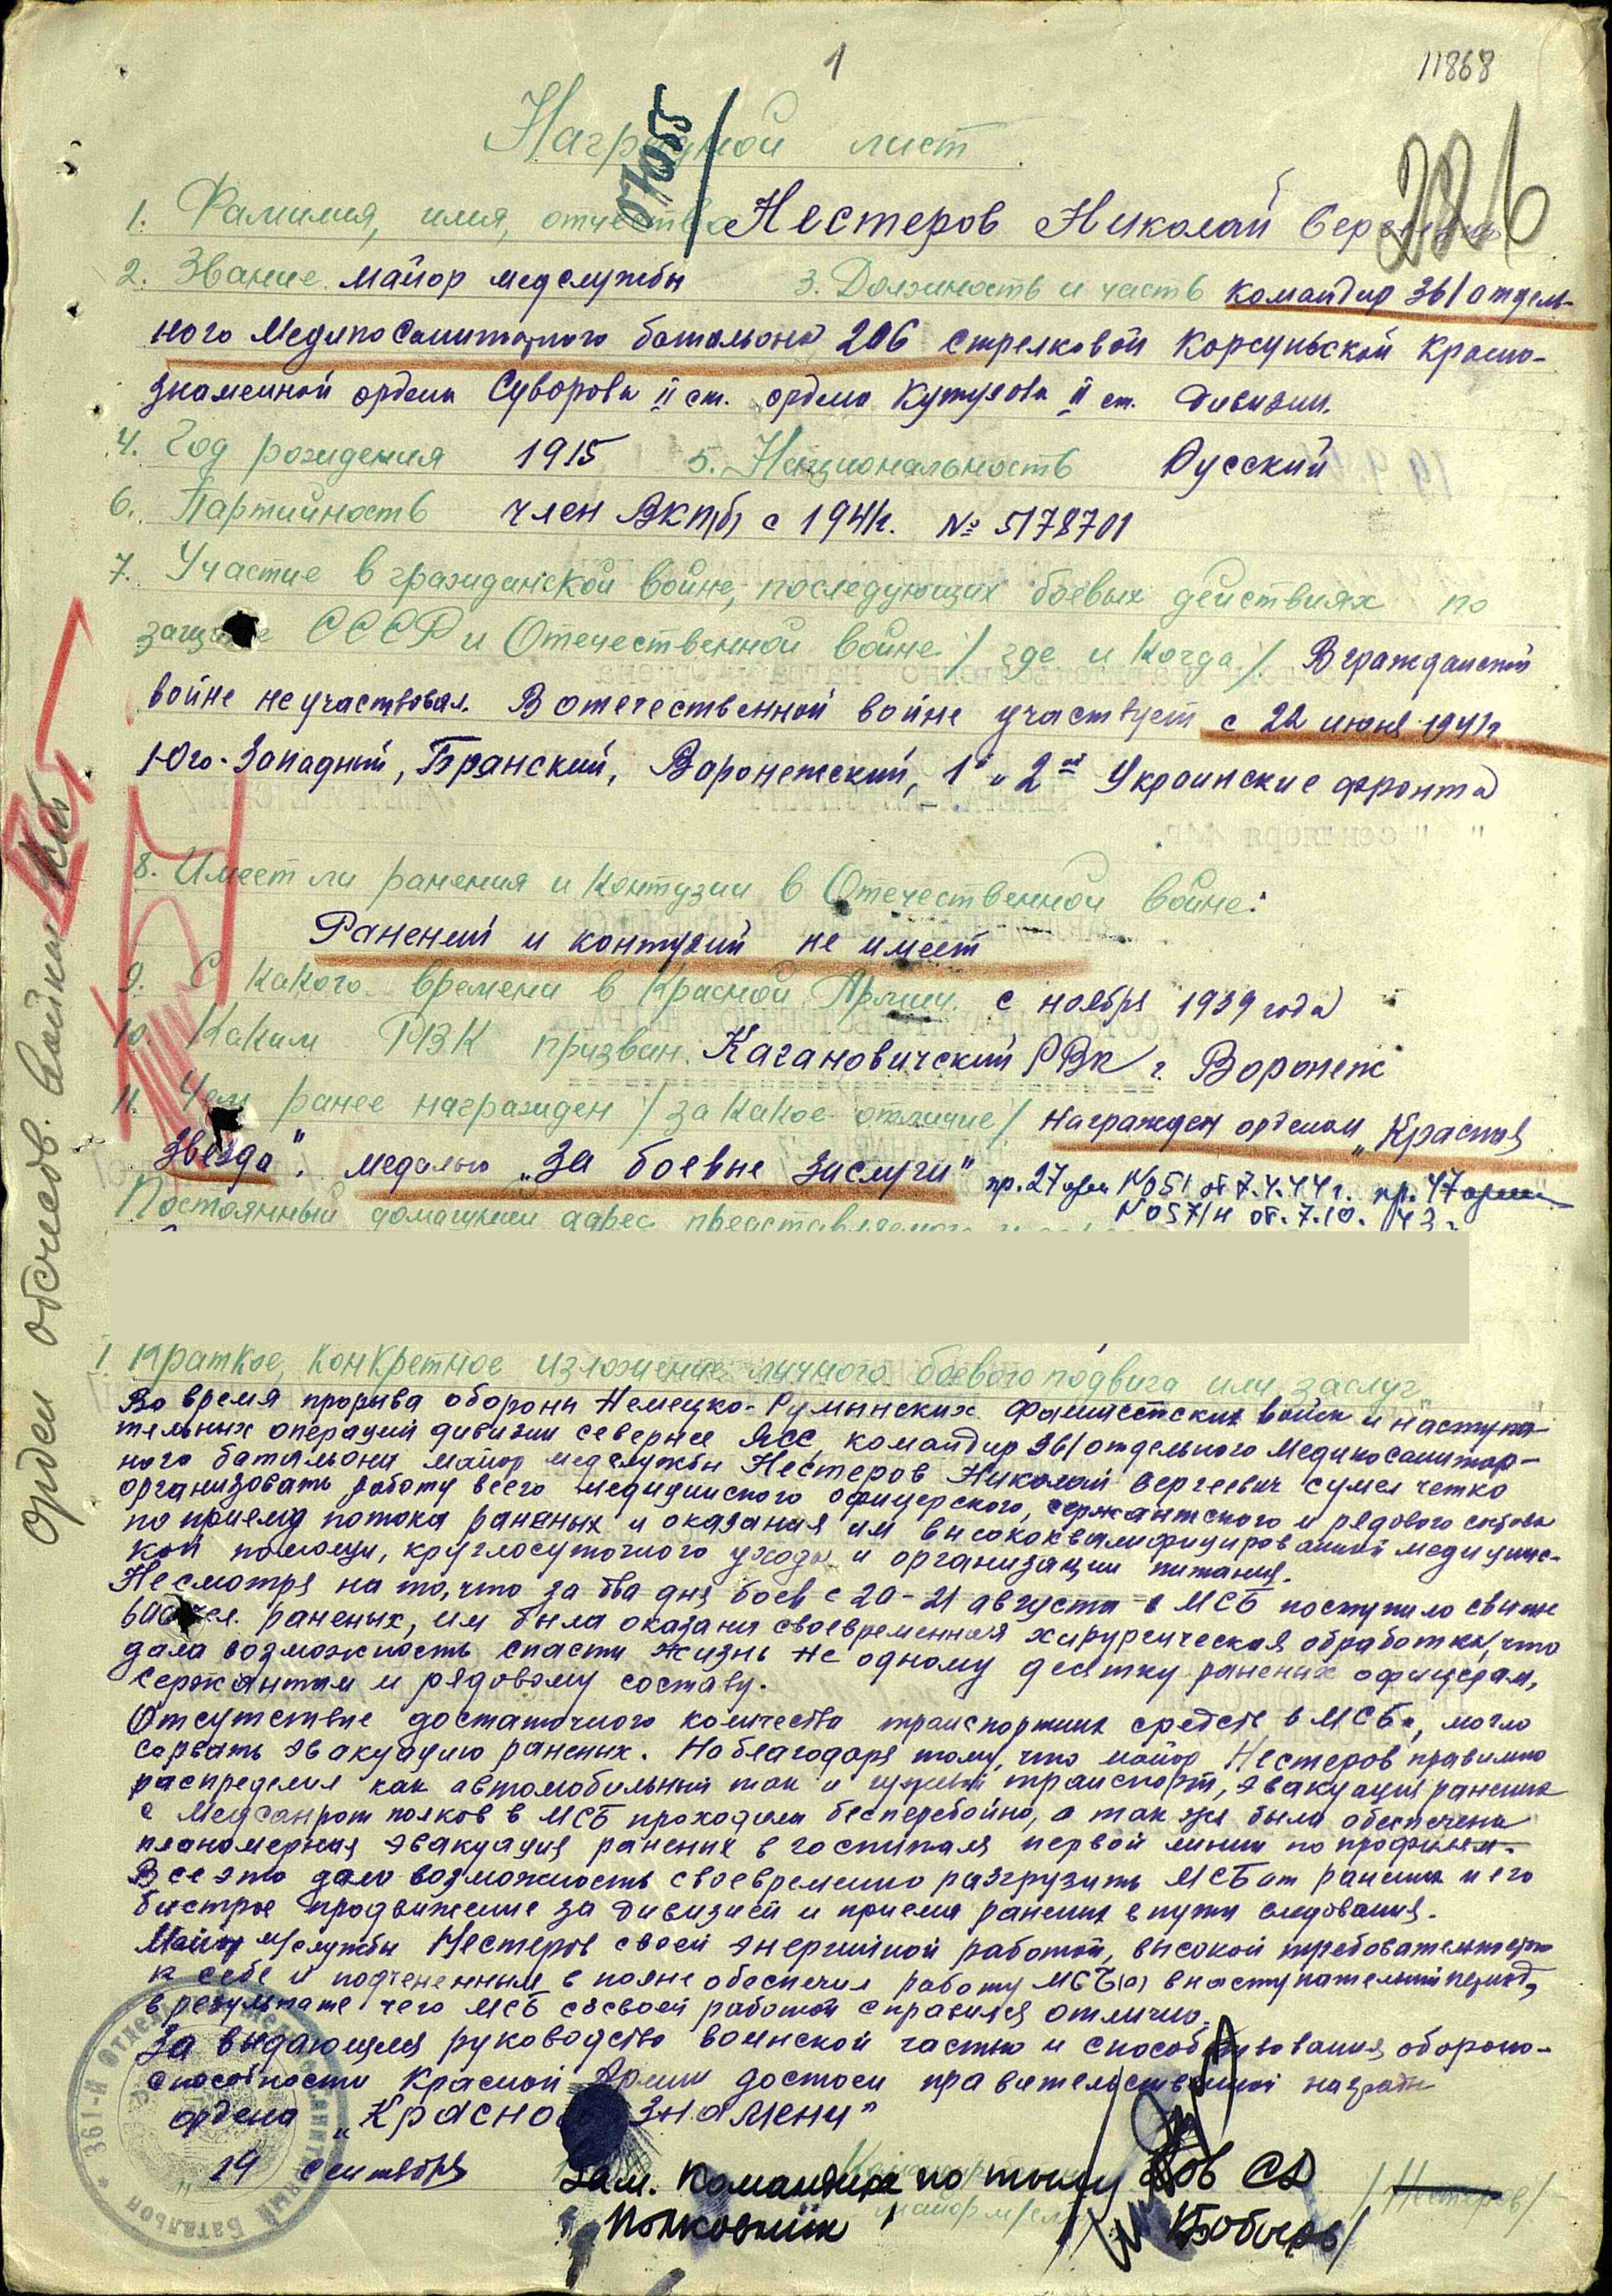 1
11868
286
Наградной лист
07055
1. Фамилия, имя, отчество Нестеров Николай Сергеевич
2. Звание майор медслужбы 3. Должность и часть командир 361 отдель-
ного Медикосанитарного батальона 206 стрелковой Корсуньской Красно-
знаменной ордена Суворова II ст. ордена Кутузова II ст. дивизии.
4. Год рождения 1915 5. Национальность Русский
6. Партийность член ВКП(б) с 1941г. № 5178701
7. Участие в гражданской войне, последующих боевых действиях по
защите СССР и Отечественной войне /где и когда/ В гражданской
войне не участвовал. В отечественной войне участвует с 22 июня 1941г
Юго-Западный, Брянский, Воронежский, 1й и 2й Украинские фронта
8. Имеет ли ранения и контузии в Отечественной войне:
Ранений и контузий не имеет
9. С какого времени в Красной Армии с ноября 1939 года
10. Каким РВК призван. Кагановичский РВК г. Воронеж
11. Чем ранее награжден /за какое отличие/ Награжден орденом „Красная
Звезда". медалью „За боевые заслуги" пр. 27 арм №051 от 7.4.44г. пр. 47 армии
№057/н от 7.10.43г.
Постоянный домашний адрес представляемого
Краткое, конкретное изложение личного боевого подвига или заслуг
Во время прорыва обороны Немецко-Румынских фашистских войск и наступа-
тельных операций дивизии севернее Ясс, командир 361 отдельного Медикосанитар-
ного батальона майор медслужбы Нестеров Николай Сергеевич сумел четко
организовать работу всего медицинского офицерского, сержантского и рядового состава
по приему потока раненых и оказания им высококвалифицированной медицинс-
кой помощи, круглосуточного ухода и организации питания.
Несмотря на то, что за два дня боев с 20-21 августа в МСБ поступило свыше
чел. раненых, им была оказана своевременная хирургическая обработка, что
дала возможность спасти жизнь не одному десятку раненых офицерам,
сержантам и рядовому составу.
Отсутствие достаточного количества транспортных средств в МСБ, могло
сорвать эвакуацию раненых. Но благодаря тому, что майор Нестеров правильно
распределил как автомобильный так и гужевой транспорт, эвакуация раненых
с Медсанрот полков в МСБ проходила бесперебойно, а так же была обеспечена
планомерная эвакуация раненых в госпиталя первой линии по профилям.
Все это дало возможность своевременно разгрузить МСБ от раненых и его
быстрое продвижение за дивизией и приема раненых в пути следования.
Майор м/службы Нестеров своей энергичной работой, высокой требовательностью
к себе и подчиненным вполне обеспечил работу МСБ(а) в наступательный период,
в результате чего МСБ со своей работой справился отлично.
За выдающееся руководство воинской частью и способствования обороно-
способности Красной Армии достоен правительственной награды
ордена „Красного Знамени"
„19 сентября
Зам. Командира по тылу 206 СД
Полковник
/Нестеров/
361-й Отдельный Медико-санитарный Батальон
Орден отечеств. войны II ст